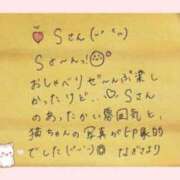 Sさん(˘ᵕ˘)
Sさ〜んっ!
おしゃべりぜ〜んぶ楽し
かったけど..♡Sさん
のあったかい雰囲気と
猫ちゃんの写真が印象的
でした(˘ᵕ˘)◎ なぎさより